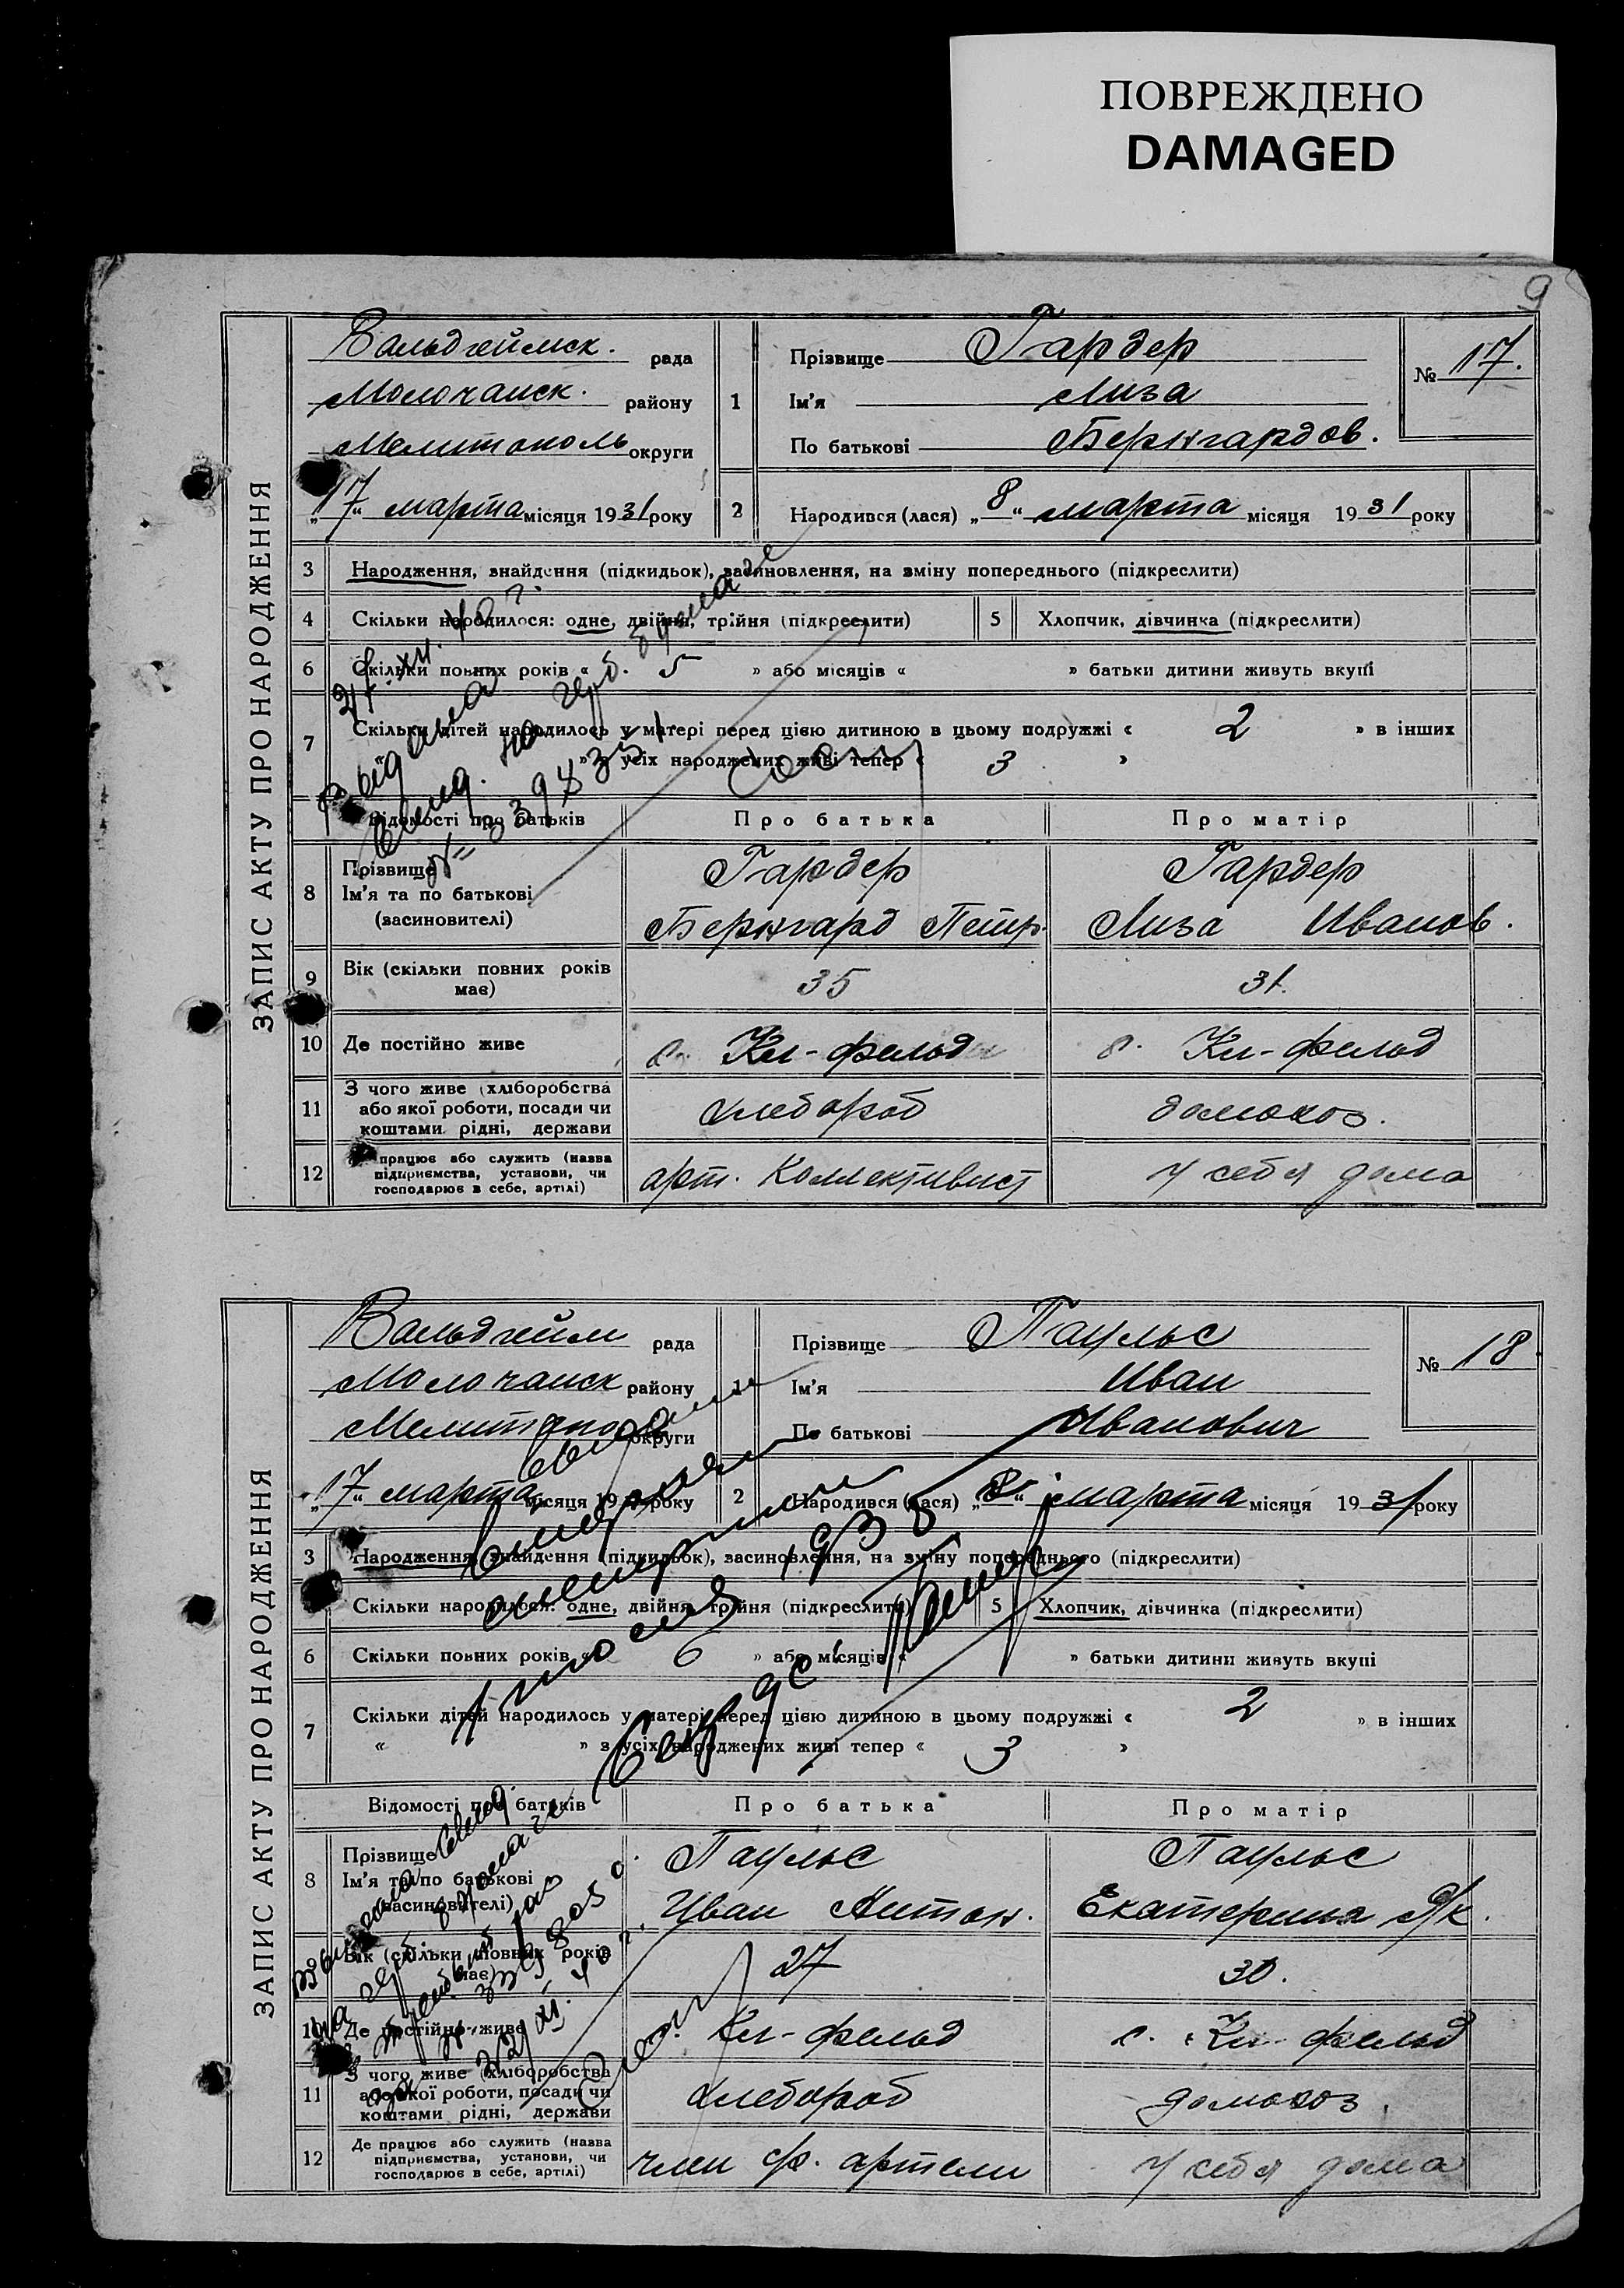 ПОВРЕЖДЕНО
DAMAGED
9
ЗАПИС АКТУ ПРО НАРОДЖЕННЯ
Вальдгеймск. рада
Молочанск. району
Мелитополь округи
„17“ марта місяця 1931 року
1 Прізвище Гардер
Ім'я Лиза
По батькові Бернгардов.
№ 17.
2 Народився (лася) „8“ марта місяця 1931 року
3 Народження, знайдення (підкидьок), засиновлення, на зміну попереднього (підкреслити)
4 Скільки народилося: одне, двійня, трійня (підкреслити) 5 Хлопчик, дівчинка (підкреслити)
6 Скільки повних років « 5 » або місяців « » батьки дитини живуть вкупі
7 Скільки дітей народилось у матері перед цією дитиною в цьому подружжі « 2 » в інших
« » з усіх народжених живі тепер « 3 »
Выдана
свид. на герб. бумаге
Відомості про батьків Про батька Про матір
8 Прізвище Гардер Гардер
Ім'я та по батькові Бернгард Петр. Лиза Иванов.
(засиновителі)
9 Вік (скільки повних років має) 35 31.
10 Де постійно живе с. Кл-фельд с. Кл-фельд
11 З чого живе (хліборобства або якої роботи, посади чи коштами рідні, держави хлебороб домохоз.
12 працює або служить (назва підприємства, установи, чи господарює в себе, артілі) арт. Коллективист у себя дома
ЗАПИС АКТУ ПРО НАРОДЖЕННЯ
Вальдгейм рада
Молочанск району
округи
„17“ марта місяця 19 року
1 Прізвище Паульс
Ім'я Иван
По батькові Иванович
№ 18
2 Народився (лася) марта місяця 1931 року
3 Народження, знайдення (підкидьок), засиновлення, на зміну попереднього (підкреслити)
4 Скільки народилося: одне, двійня, трійня (підкреслити) 5 Хлопчик, дівчинка (підкреслити)
6 Скільки повних років « 6 » або місяців « » батьки дитини живуть вкупі
7 Скільки дітей народилось у матері перед цією дитиною в цьому подружжі « 2 » в інших
« » з усіх народжених живі тепер « 3 »
1 июля 1935
Відомості про батьків Про батька Про матір
8 Прізвище Паульс Паульс
Ім'я та по батькові Иван Антон. Екатерина Як.
(засиновителі)
9 Вік (скільки повних років має) 27 30.
10 Де постійно живе с. Кл-фельд с. Кл-фельд
11 З чого живе (хліборобства або якої роботи, посади чи коштами рідні, держави хлебороб домохоз.
12 Де працює або служить (назва підприємства, установи, чи господарює в себе, артілі) член ср. артели у себя дома